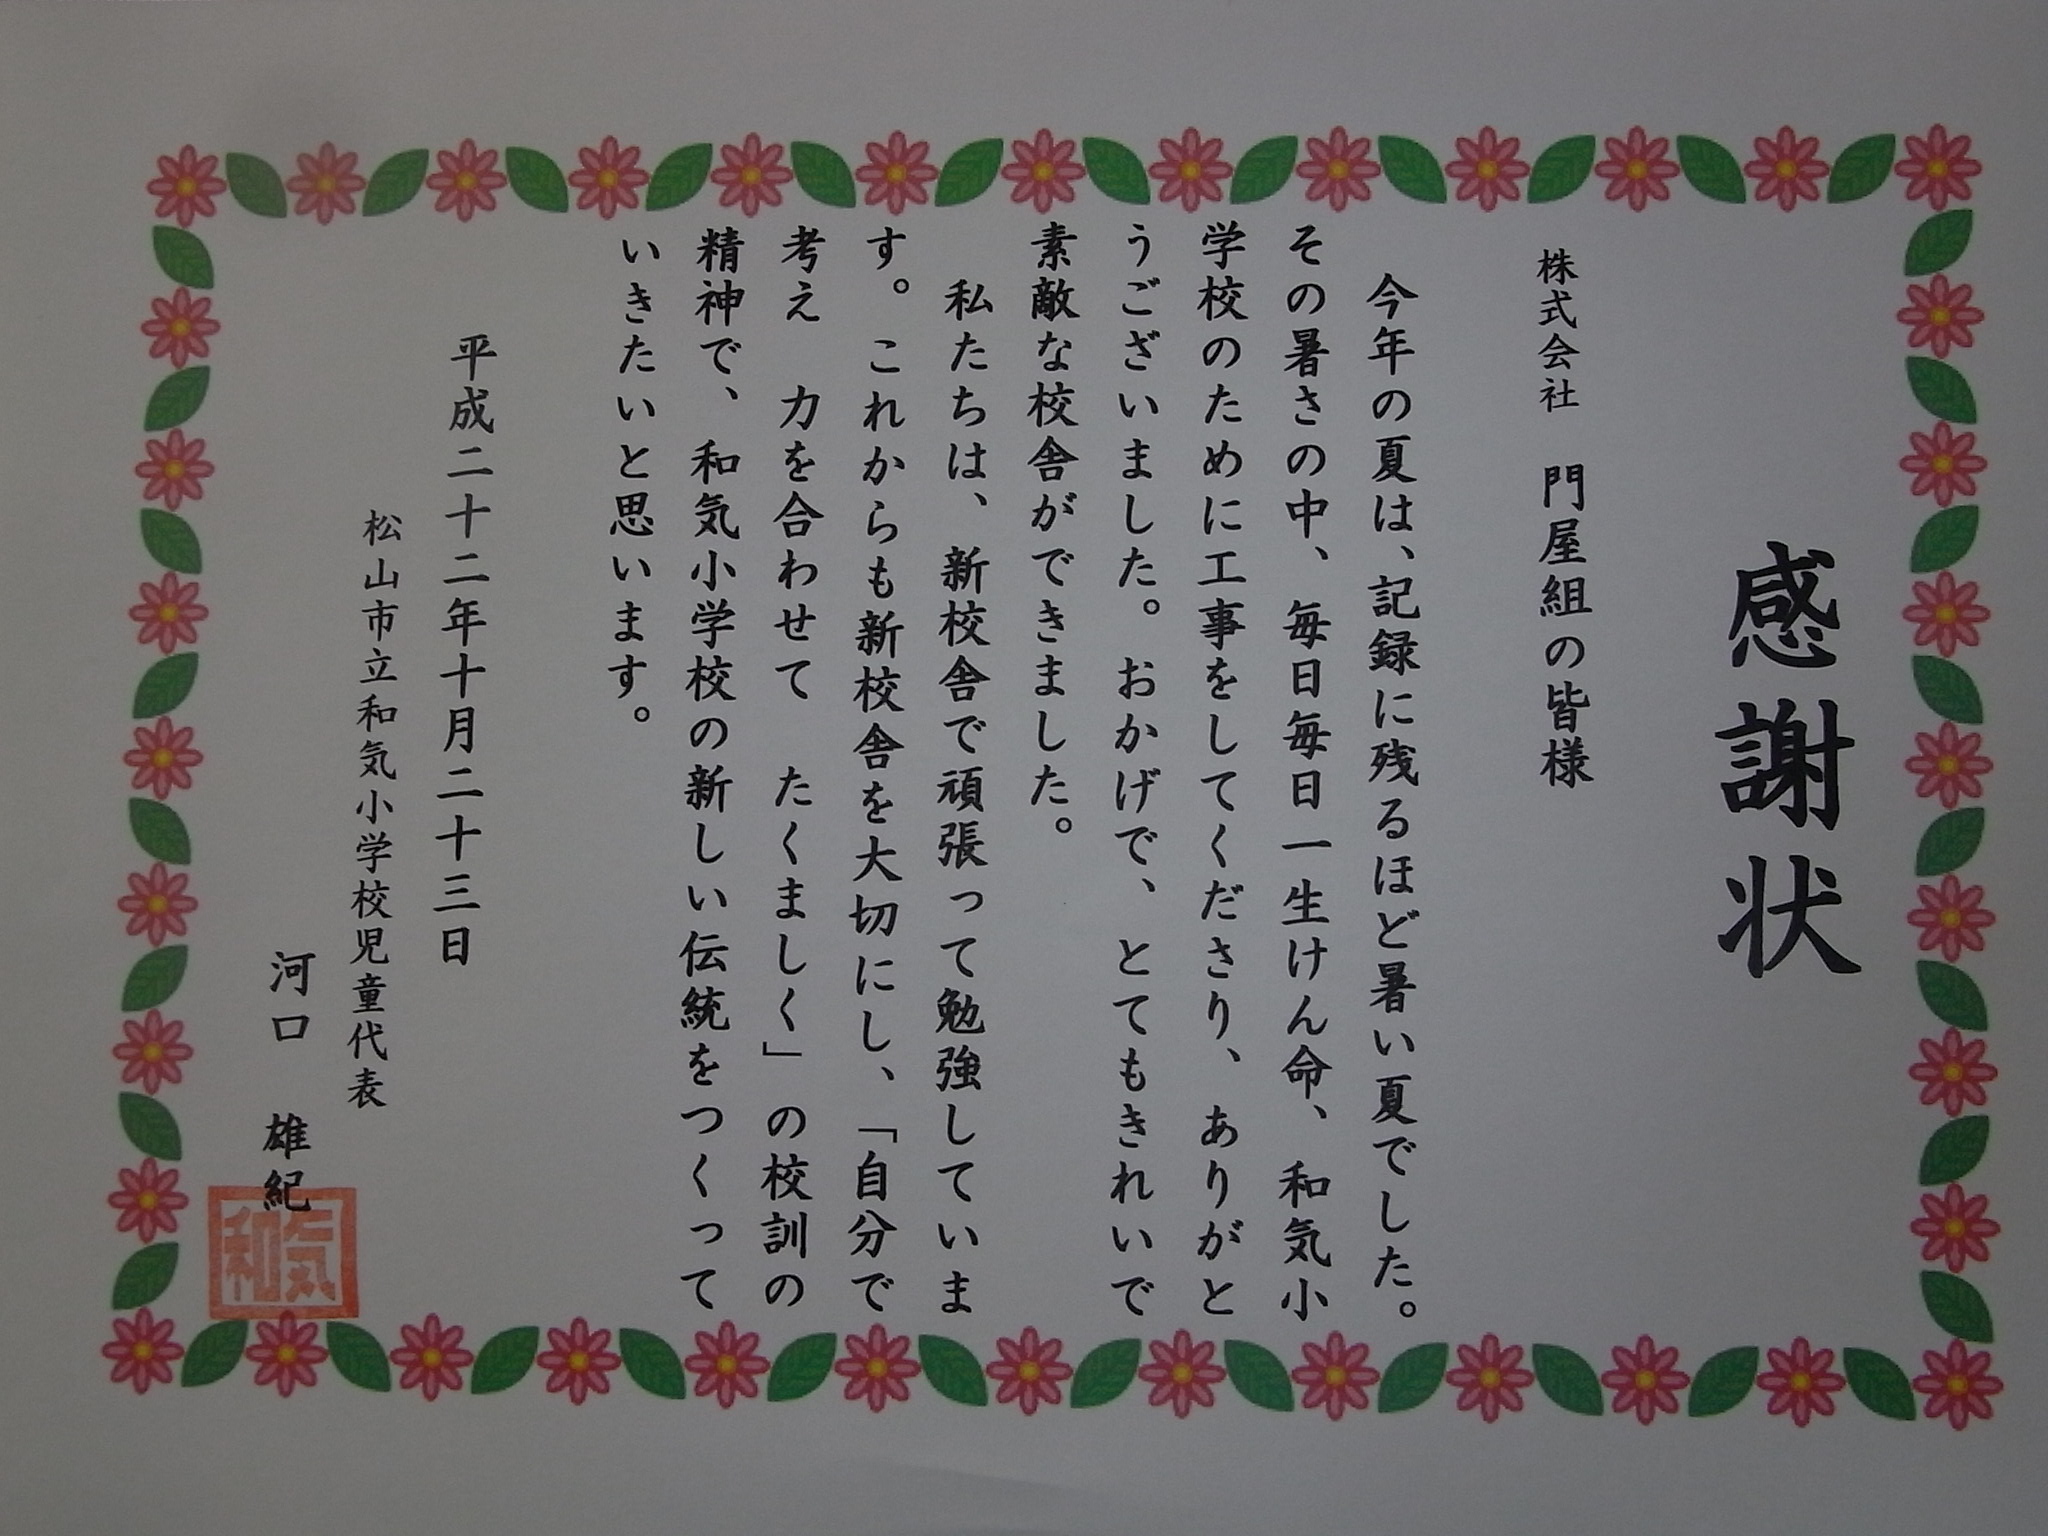 感謝状
株式会社　門屋組の皆様
今年の夏は、記録に残るほど暑い夏でした。
その暑さの中、毎日毎日一生けん命、和気小
学校のために工事をしてくださり、ありがと
うございました。おかげで、とてもきれいで
素敵な校舎ができました。
私たちは、新校舎で頑張って勉強していま
す。これからも新校舎を大切にし、「自分で
考え　力を合わせて　たくましく」の校訓の
精神で、和気小学校の新しい伝統をつくって
いきたいと思います。
平成二十二年十月二十三日
松山市立和気小学校児童代表
河口　雄紀
和気